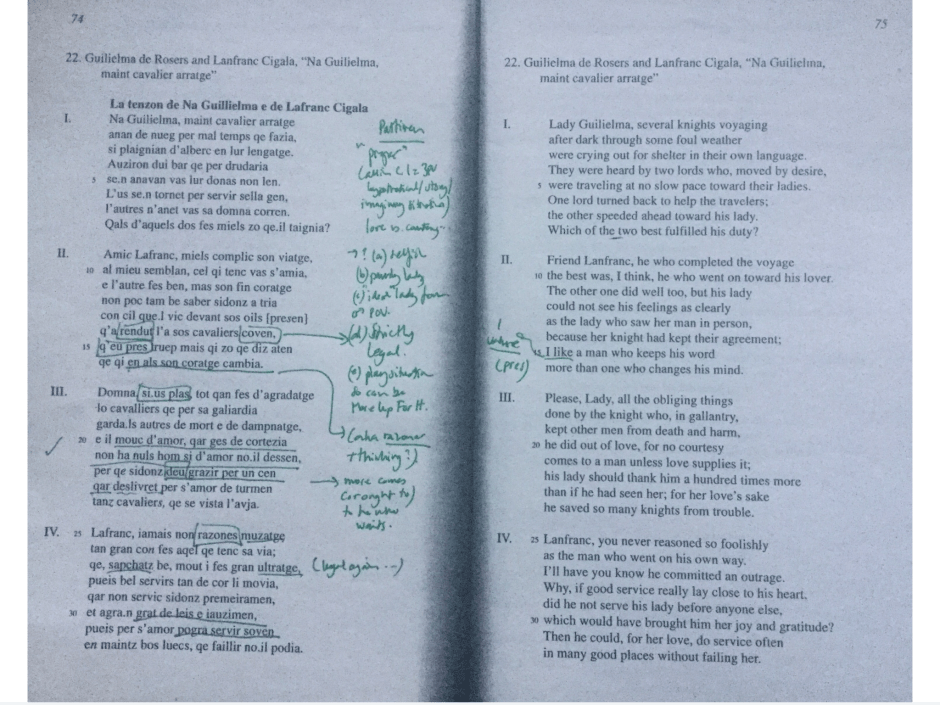 74
22. Guilielma de Rosers and Lanfranc Cigala, "Na Guilielma,
maint cavalier arratge"
La tenzon de Na Guillielma e de Lafranc Cigala
I. Na Guilielma, maint cavalier arratge
anan de nueg per mal temps qe fazia,
si plaignian d'alberc en lur lengatge.
Auziron dui bar qe per drudaria
5 se.n anavan vas lur donas non len.
L'us se.n tornet per servir sella gen,
l'autres n'anet vas sa domna corren.
Qals d'aquels dos fes miels zo qe.il taignia?
II. Amic Lafranc, miels complic son viatge,
10 al mieu semblan, cel qi tenc vas s'amia,
e l'autre fes ben, mas son fin coratge
non poc tam be saber sidonz a tria
con cil que.l vic devant sos oils [presen]
q'a rendut l'a sos cavaliers coven,
15 q'eu pres truep mais qi zo qe diz aten
qe qi en als son coratge cambia.
III. Domna, si.us plas, tot qan fes d'agradatge
lo cavalliers qe per sa galiardia
garda.ls autres de mort e de dampnatge,
20 e il mouc d'amor, qar ges de cortezia
non ha nuls hom si d'amor no.il dessen,
per qe sidonz deu grazir per un cen
qar deslivret per s'amor de turmen
tanz cavaliers, qe se vista l'avja.
IV. 25 Lafranc, iamais non razones muzatge
tan gran con fes aqel qe tenc sa via;
qe, sapchatz be, mout i fes gran ultratge,
pueis bel servirs tan de cor li movia,
qar non servic sidonz premeiramen,
30 et agra.n grat de leis e iauzimen,
pueis per s'amor pogra servir soven
en maintz bos luecs, qe faillir no.il podia.
Partimen
"proper"
love v. courtesy
(b) purely lady
(c) ideal lady from
POV.
(d) Strictly
legal.
do can be
More up for it.
thinking?)
more comes
to he who
waits.
(legal again ...)
(pres)
75
22. Guilielma de Rosers and Lanfranc Cigala, "Na Guilielma,
maint cavalier arratge"
I. Lady Guilielma, several knights voyaging
after dark through some foul weather
were crying out for shelter in their own language.
They were heard by two lords who, moved by desire,
5 were traveling at no slow pace toward their ladies.
One lord turned back to help the travelers;
the other speeded ahead toward his lady.
Which of the two best fulfilled his duty?
II. Friend Lanfranc, he who completed the voyage
10 the best was, I think, he who went on toward his lover.
The other one did well too, but his lady
could not see his feelings as clearly
as the lady who saw her man in person,
because her knight had kept their agreement;
15 I like a man who keeps his word
more than one who changes his mind.
III. Please, Lady, all the obliging things
done by the knight who, in gallantry,
kept other men from death and harm,
20 he did out of love, for no courtesy
comes to a man unless love supplies it;
his lady should thank him a hundred times more
than if he had seen her; for her love's sake
he saved so many knights from trouble.
IV. 25 Lanfranc, you never reasoned so foolishly
as the man who went on his own way.
I'll have you know he committed an outrage.
Why, if good service really lay close to his heart,
did he not serve his lady before anyone else,
30 which would have brought him her joy and gratitude?
Then he could, for her love, do service often
in many good places without failing her.